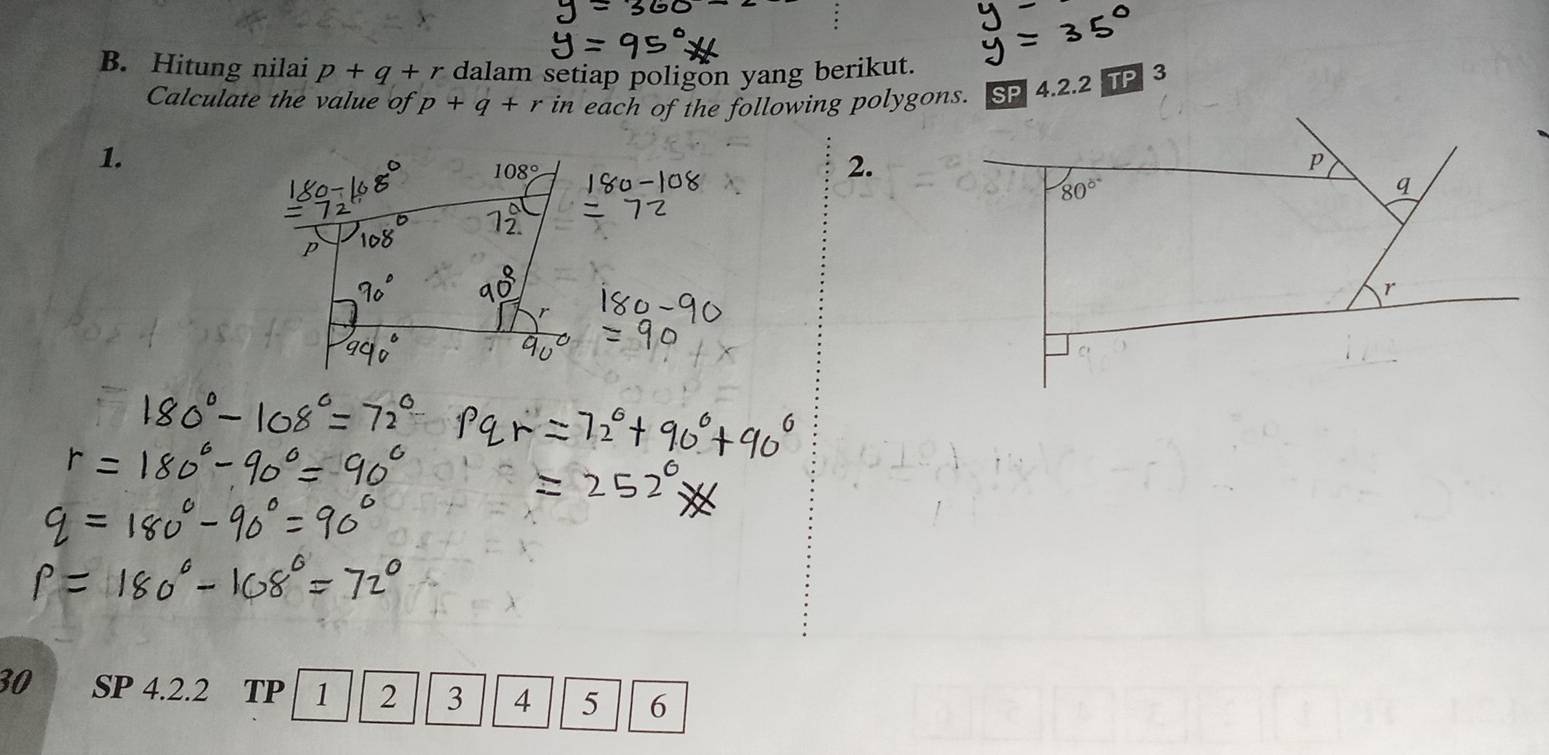 y = 360 - 2
y = 95°
y -
y = 35°
B. Hitung nilai p + q + r dalam setiap poligon yang berikut.
Calculate the value of p + q + r in each of the following polygons. SP 4.2.2 TP 3
1.
180-108°
= 72
108°
180-108
= 72
p
108°
72°
90°
90°
r
180-90
= 90
q90°
90°
180° - 108° = 72°
pqr = 72° + 90° + 90°
= 252°
r = 180° - 90° = 90°
q = 180° - 90° = 90°
p = 180° - 108° = 72°
2.
80°
p
q
r
30 SP 4.2.2 TP 1 2 3 4 5 6